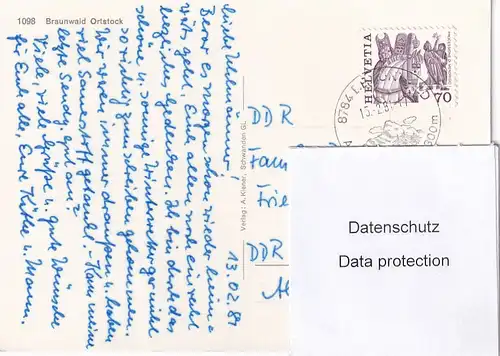 1098 Braunwald Ortstock
13.02.84
Liebe Ihlmänner!
Bevor es morgen schon wieder heim-
wärts geht, Euch allen noch ein recht
herzliches Gedenken. Ich bin durch das
schöne u. sonnige Winterwetter gar nicht
so richtig zum Schreiben gekommen.
Wir waren immer draußen u. haben
viel Sauerstoff getankt! - Kam meine
letzte Sendg. gut an?
Viele, viele Grüße u. gute Wünsche
für Euch alle, Eure Käthe u. Mann.
Verlag: A. Kiener, Schwanden GL
HELVETIA
70
8784
1300m
DDR
Fam
Frie
DDR
Datenschutz
Data protection